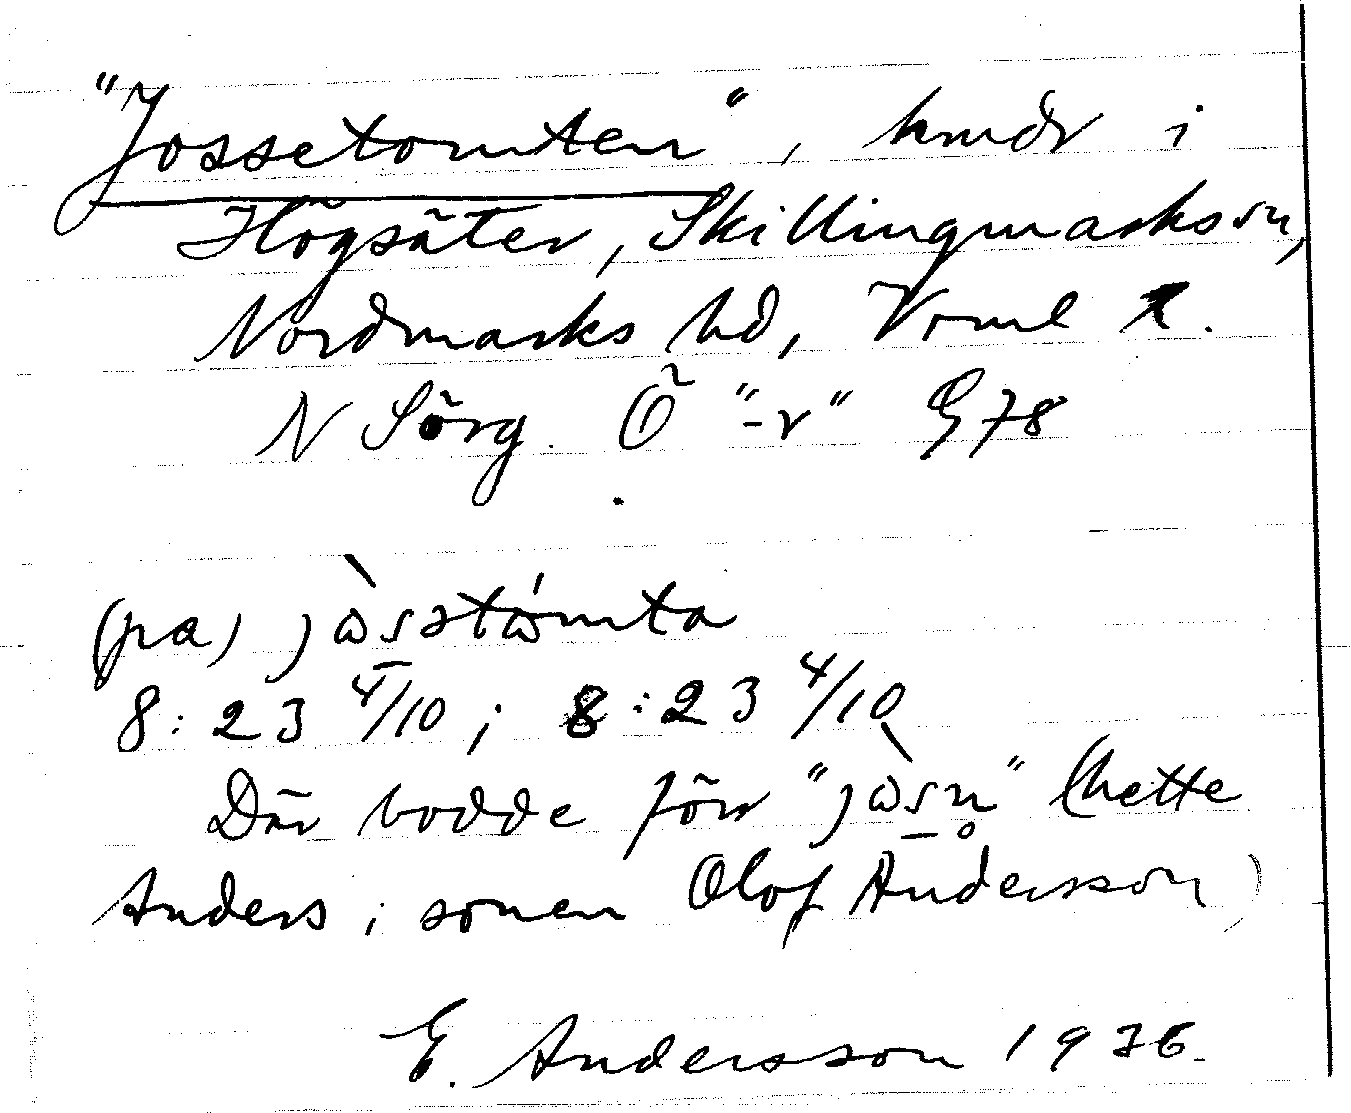 "Jossetomten", kmdr i
Högsäter, Skillingmarks sn,
Nordmarks hd, Vrml
N Sörg. Ö "-r" G 78
(pa) jòsstómta
8:23 4/10; 8:23 4/10
Där bodde förr "jòsn" (hette
Anders; sonen Olof Andersson)
E. Andersson 1936